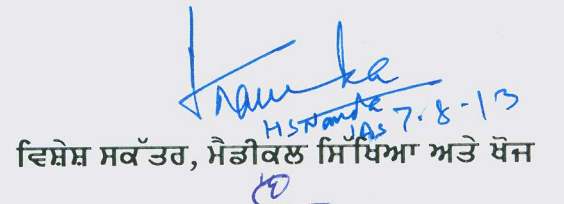 HSNanda
IAS 7.8-13
ਵਿਸ਼ੇਸ਼ ਸਕੱਤਰ, ਮੈਡੀਕਲ ਸਿੱਖਿਆ ਅਤੇ ਖੋਜ